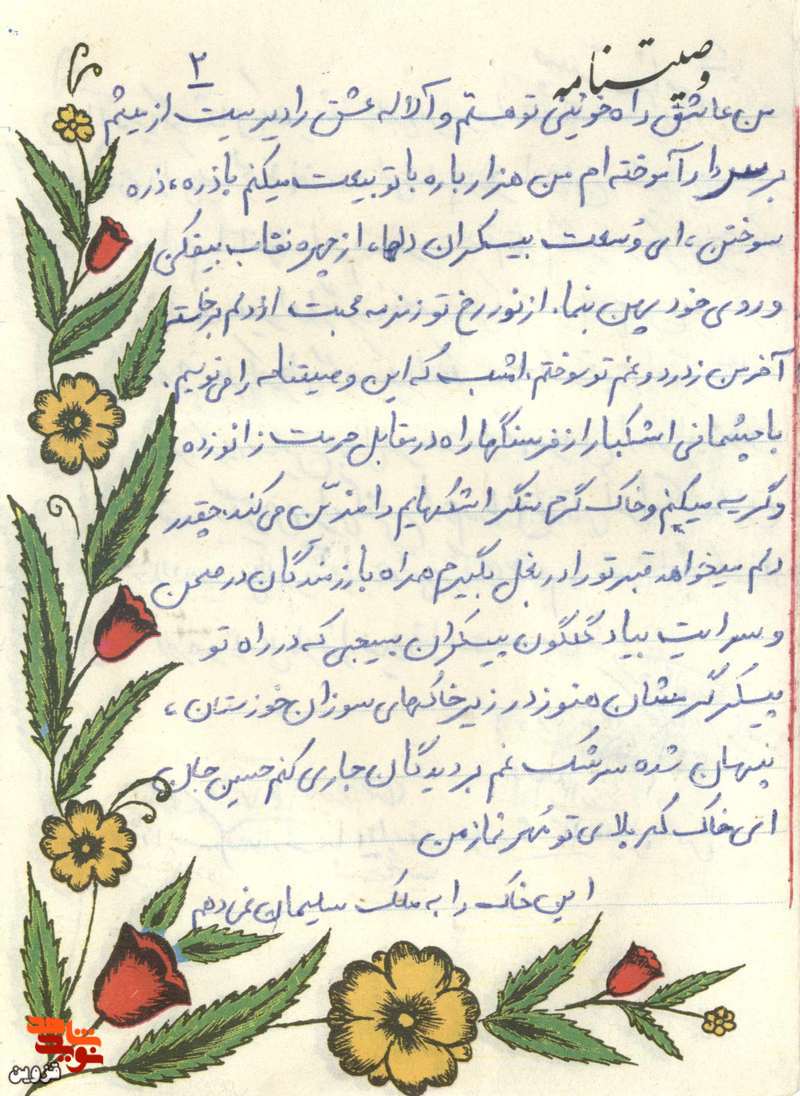 وصیتنامه
۲
من عاشق راه خونین تو هستم و آلاله عشق را دیریست از میثم
بر سر دار آموخته ام من هزار باره با تو بیعت میکنم با ذره، ذره
سوختن، ای وُسعت بیکران دلها، از چهره نقاب بیفکن
و روی خود بمن بنما. از نور رخ تو زنده محبت از دلم برخاسته
آخر من ز درد و غم تو سوختم. امشب که این وصیتنامه را می نویسم.
با چشمانی اشکبار از فرسنگها راه در مقابل حرمت زانو زده
و گریه میکنم و خاک گرم سنگر اشکهایم را مزیّن می کند، چقدر
دلم میخواهد قبر تو را در بغل بگیرم همراه با رزمندگان در صحن
و سرایت بیاد گلگون پیکران بسیجی که در راه تو
پیکر هنوز در زیر خاکهای سوزان خوزستان،
پنهان شده سرشک غم بر دیدگان جاری کنم حسین جان
ای خاک کربلای تو مُهر نماز من
این خاک را به ملک سلیمان نمی دهم
نوید شاهد
قزوین